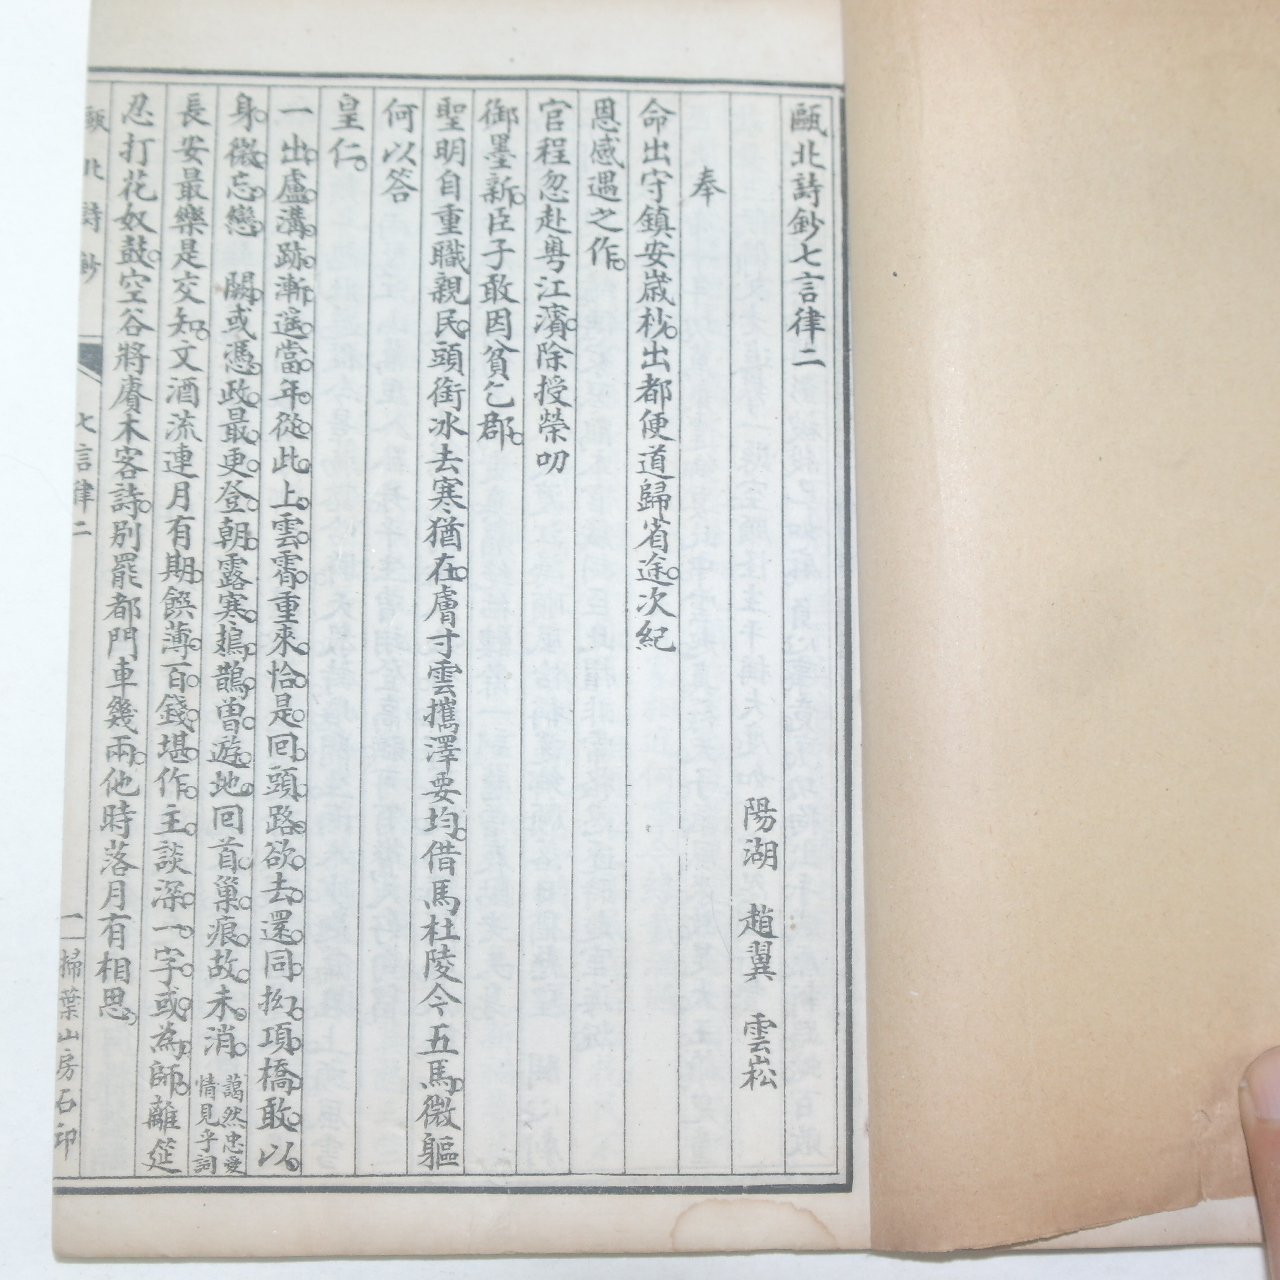 甌北詩鈔七言律二
陽湖 趙翼 雲崧
奉
命出守鎮安歲杪出都便道歸省途次紀
恩感遇之作
官程忽赴粤江濱除授榮叨
御墨新臣子敢因貧乞郡
聖明自重職親民頭銜冰去寒猶在膚寸雲攜澤要均借馬杜陵今五馬微軀
何以答
皇仁
一出盧溝跡漸遙當年從此上雲霄重來恰是回頭路欲去還同拗項橋敢以
身微忘戀 闕或憑政最更登朝露寒鳷鵲曾遊地回首巢痕故未消藹然忠愛情見乎詞
長安最樂是交知文酒流連月有期饌薄百錢堪作主談深一字或為師離筵
忍打花奴鼓空谷將賡木客詩別罷都門車幾兩他時落月有相思
甌北詩鈔 七言律二 一 掃葉山房石印